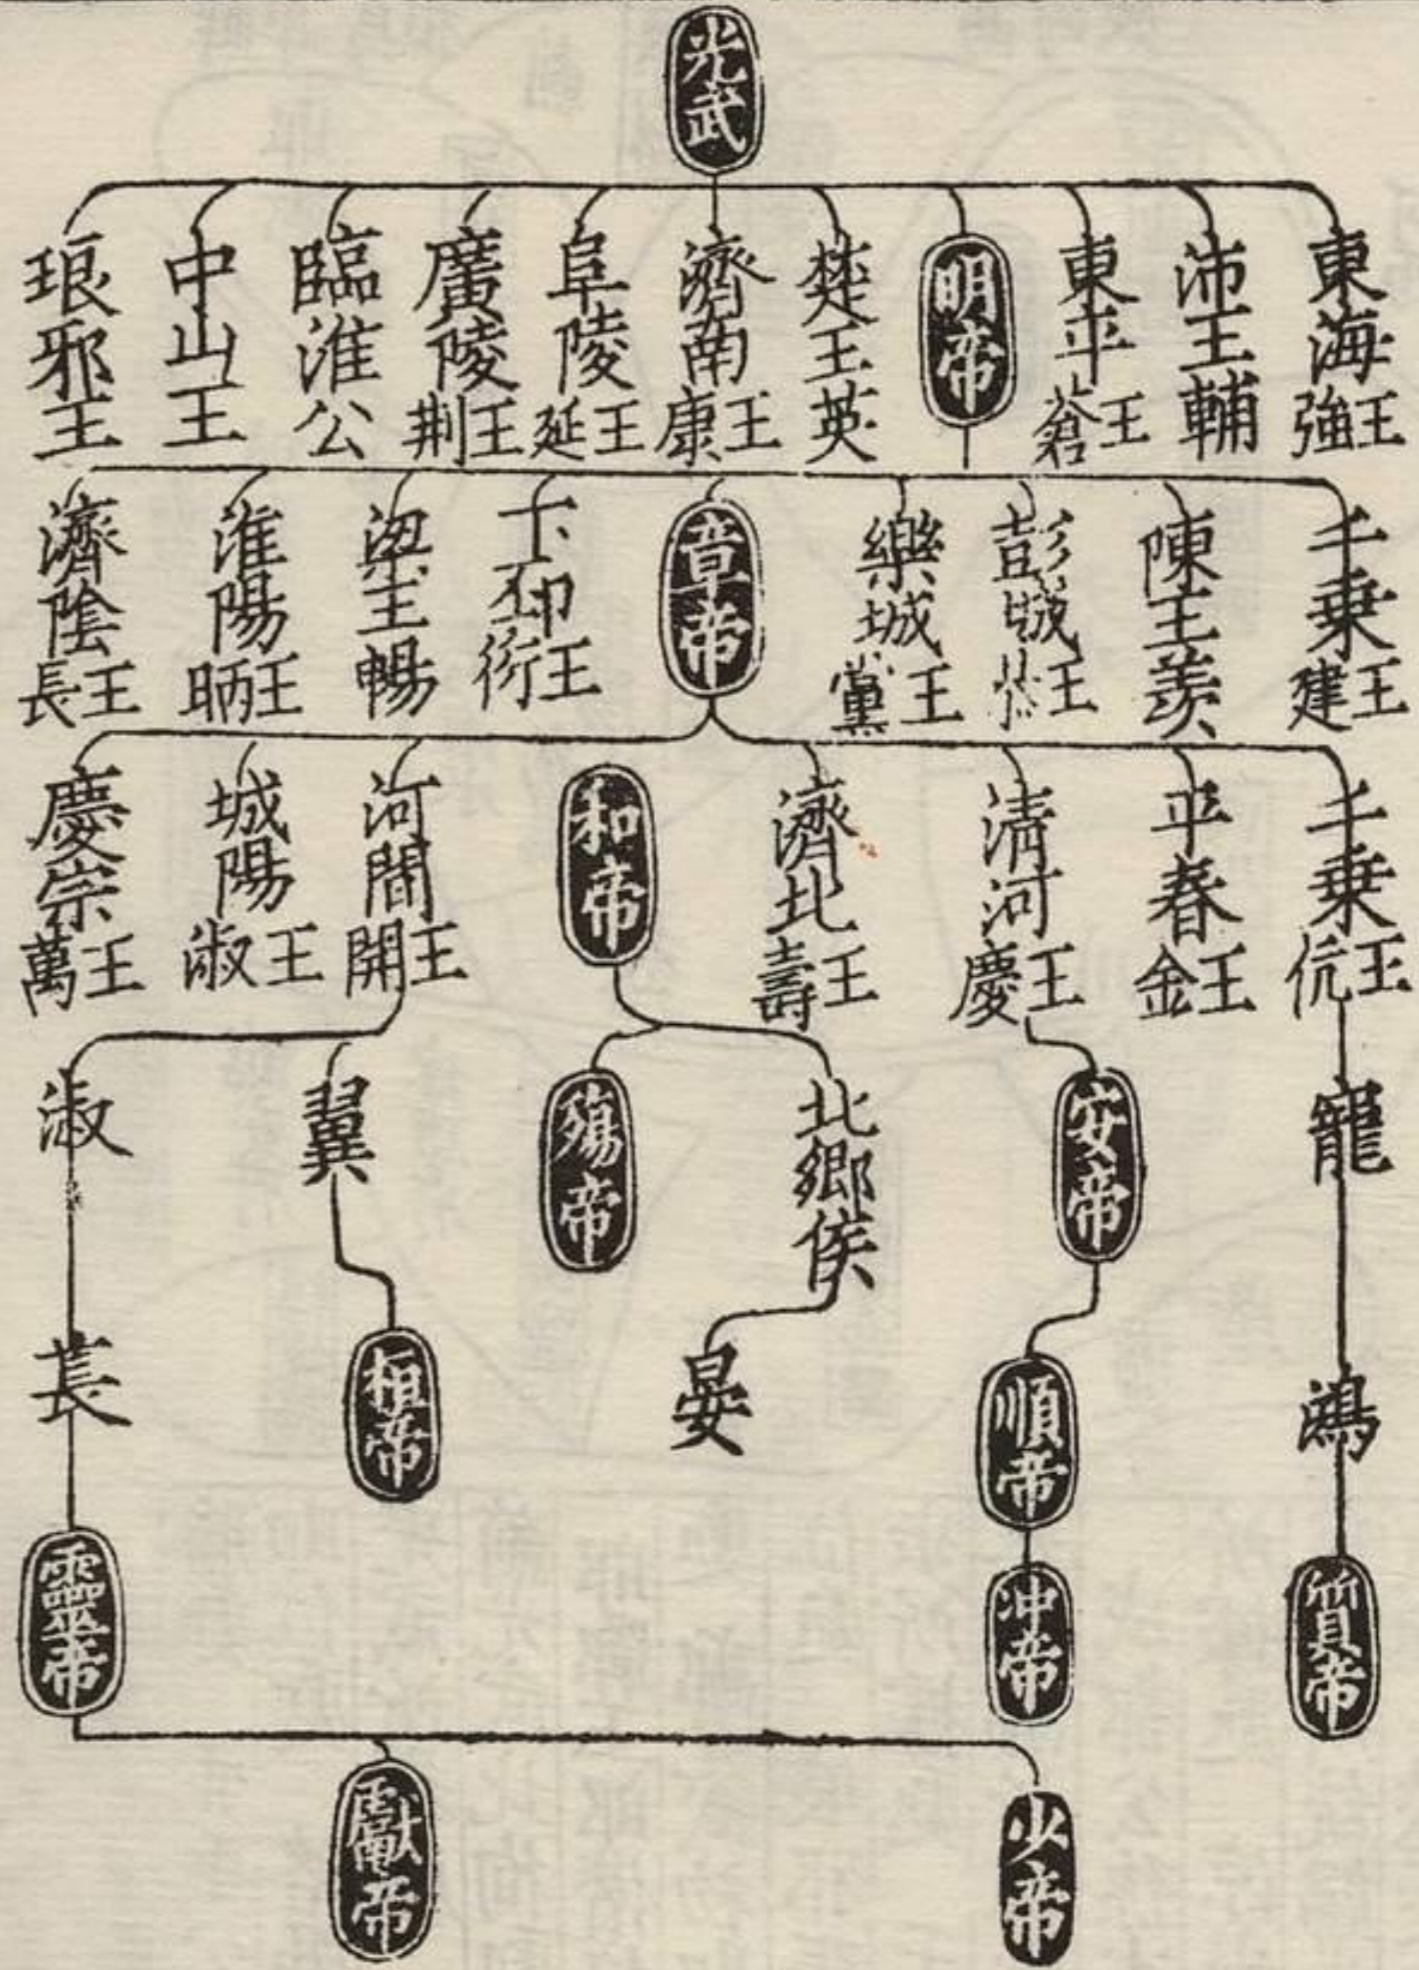 光武
東海王強
沛王輔
東平王蒼
明帝
楚王英
濟南王康
阜陵王延
廣陵王荆
臨淮公
中山王
琅邪王
千乗王建
陳王羨
彭城王恭
樂城王黨
章帝
下邳王衍
梁王暢
淮陽王昞
濟陰王長
千乗王伉
平春王金
清河王慶
濟北王壽
和帝
河間王開
城陽王淑
慶宗王萬
寵
安帝
北鄉侯
殤帝
翼
淑
鴻
順帝
晏
桓帝
萇
質帝
沖帝
靈帝
少帝
獻帝